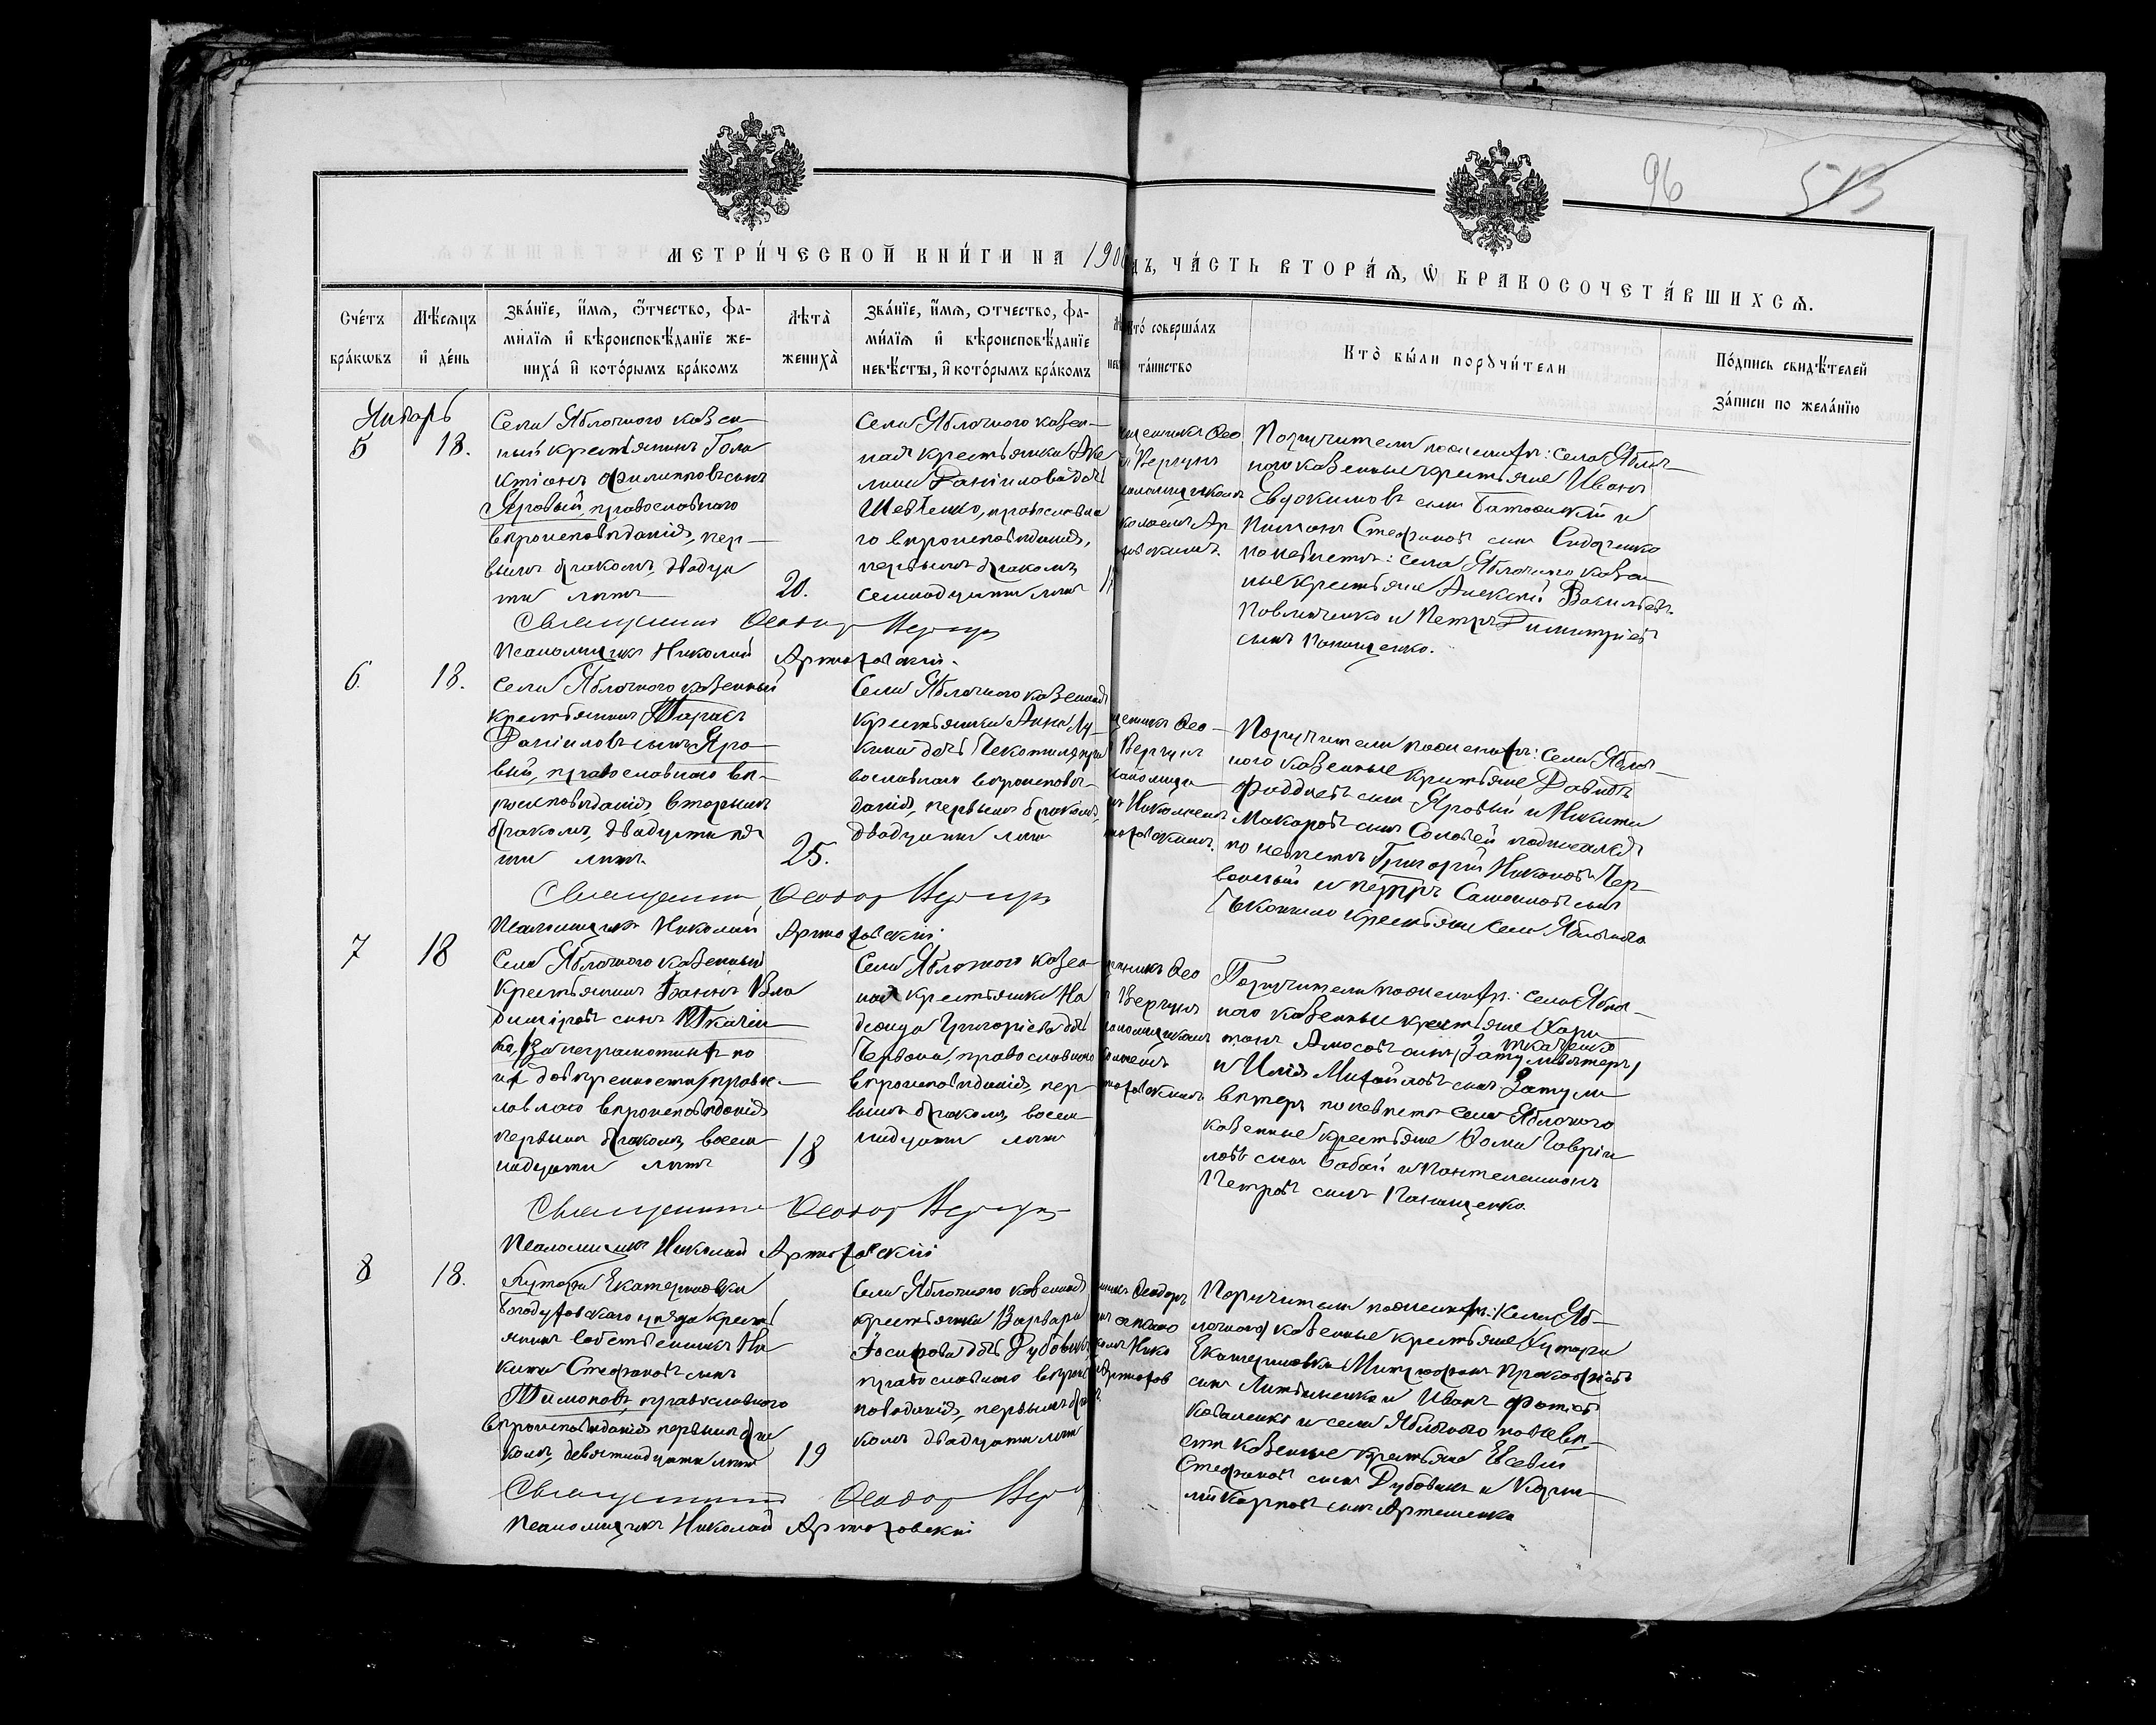 96
513
МЕТРИ́ЧЕСКОЙ КНИ́ГИ НА 190
дъ, ЧА́СТЬ ВТОРА́Ѧ, Ѡ БРАКОСОЧЕТА́ВШИХСѦ.
Сче́тъ бра́кѡвъ
Мѣ́сѧцъ и҆ де́нь
Зва́нїе, и҆́мѧ, ѻ҆́тчество, фа-
ми́лїѧ и҆ вѣроисповѣ́данїе же-
ниха́ и҆ кото́рымъ бра́комъ
Лѣта̀ жениха̀
Зва́нїе, и҆́мѧ, ѻтчество, фа-
ми́лїѧ и҆ вѣроисповѣ́данїе
невѣ́сты, и҆ кото́рымъ бра́комъ
Кто́ соверша́лъ
та́инство
Кто̀ бы́ли порꙋчи́тели
По́дпись свидѣ́телей
за́писи по жела́нїю
Январь
5
18.
Села Яблочного казен-
ный крестьянинъ Гала
ктіонъ Филипповъ сынъ
Яровый, православнаго
вѣроисповѣданія, пер-
вымъ бракомъ, двадца
ти лѣтъ
20.
Села Яблочного казен-
ная крестьянка Аке
лина Даніилова дочь
Шевченко, православна
го вѣроисповѣданія,
первымъ бракомъ,
семнадцати лѣтъ
щенникъ Ѳео
Вергунъ
псаломщикомъ
колаемъ Ар
товскимъ.
Поручители по женихѣ: села Яблоч-
ного казенные крестьяне Иванъ
Евдокимовъ сынъ и
Стефановъ сынъ Сидоренко
по невѣстѣ: села Яблочного казен-
ные крестьяне Алексѣй Васильевъ
Павличенко и Петръ Димитріевъ
сынъ Панащенко.
Священникъ Ѳеодоръ Вергунъ
Псаломщикъ Николай Артюховскій.
6.
18.
Села Яблочного казенный
крестьянинъ Тарасъ
Даніиловъ сынъ Яро-
вый, православнаго вѣ-
роисповѣданія, вторымъ
бракомъ, двадцати пя
ти лѣтъ.
25.
Села Яблочного казенная
крестьянка Анна Лу-
кина дочь Чекотило, пра
вославнаго вѣроисповѣ-
данія, первымъ бракомъ,
двадцати лѣтъ
щенникъ Ѳео-
Вергунъ
псаломщи-
Николаемъ
товскимъ.
Поручители по женихѣ: села Яблоч-
ного казенные крестьяне Давидъ
Фаддеевъ сынъ Яровый и Никита
Макаровъ сынъ Соловей
по невѣстѣ Григорій Никоновъ Чер-
вонный и Петръ Самойловъ сынъ
Чекотило крестьяне села Яблочного
Священникъ Ѳеодоръ Вергунъ
Псаломщикъ Николай Артюховскій
7
18
Села Яблочного казенный
крестьянинъ Іоаннъ Вла
диміровъ сынъ Ткачен
ко, (за неграмотныхъ по
ихъ довѣренности) правос-
лавнаго вѣроисповѣданія
первымъ бракомъ, восем
надцати лѣтъ
18
Села Яблочного казен-
ная крестьянка На
дежда Григорьева дочь
Червона, православного
вѣроисповѣданія, пер-
вымъ бракомъ, восем
надцати лѣтъ
щенникъ Ѳео
Вергунъ
псаломщикомъ
колаемъ
товскимъ
Поручители по женихѣ: села Яблоч-
ного казенные крестьяне Хари-
тонъ Амосовъ сынъ (Затуливѣтеръ)
Ткаченко
и Илія Михайловъ сынъ Затули
вѣтеръ по невѣстѣ села Яблочного
казенные крестьяне Ѳома Гавріи
ловъ сынъ Бабай и Пантелеимонъ
Петровъ сынъ Панащенко.
Священникъ Ѳеодоръ Вергунъ
Псаломщикъ Николай Артюховскій
8
18.
Хутора Екатериновки
Богодуховскаго уѣзда кресть
янинъ собственникъ Ни
кита Стефановъ сынъ
Тимоновъ, православного
вѣроисповѣданія первымъ бра
комъ, девятнадцати лѣтъ
19
Села Яблочного казенная
крестьянка Варвара
Іосифова дочь Дубовикъ,
православного вѣроис
повѣданія, первымъ бра
комъ двадцати лѣтъ
никъ Ѳеодоръ
Нико
Артюхов
Поручители по женихѣ: (села Яб-
лочного) казенные крестьяне хутора
Екатериновки Митрофанъ Прокофіевъ
сынъ Литвиненко и Иванъ Фотіевъ
Коваленко и села Яблочного по невѣ-
стѣ казенные крестьяне Евсевій
Стефановъ сынъ Дубовикъ и Кори-
лій Карповъ сынъ Артеменко
Священникъ Ѳеодоръ Вер
Псаломщикъ Николай Артюховскій